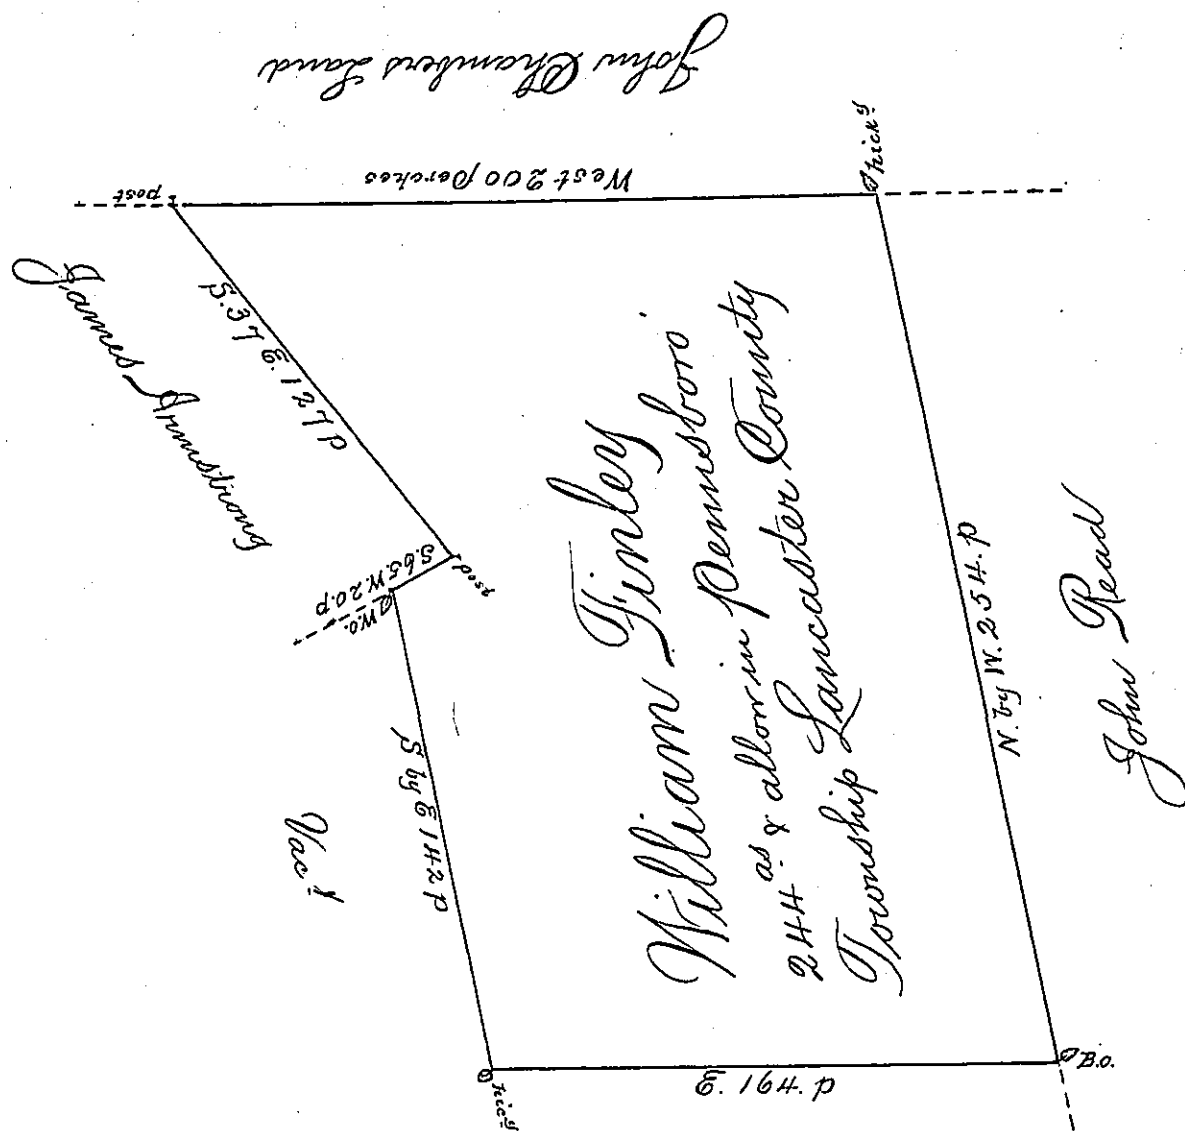 John Chambers Land
West 200 perches
post
hick.y
James Armstrong
S. 37 E. 127 P
post
S. 65. W. 20. P
W.O.
Vac.t
S by E 142 P
hic.y
William Finley
244 as & allow in Pennsboro
Township Lancaster County
N. by W. 254. P
John Read
E. 164. P
B.O.